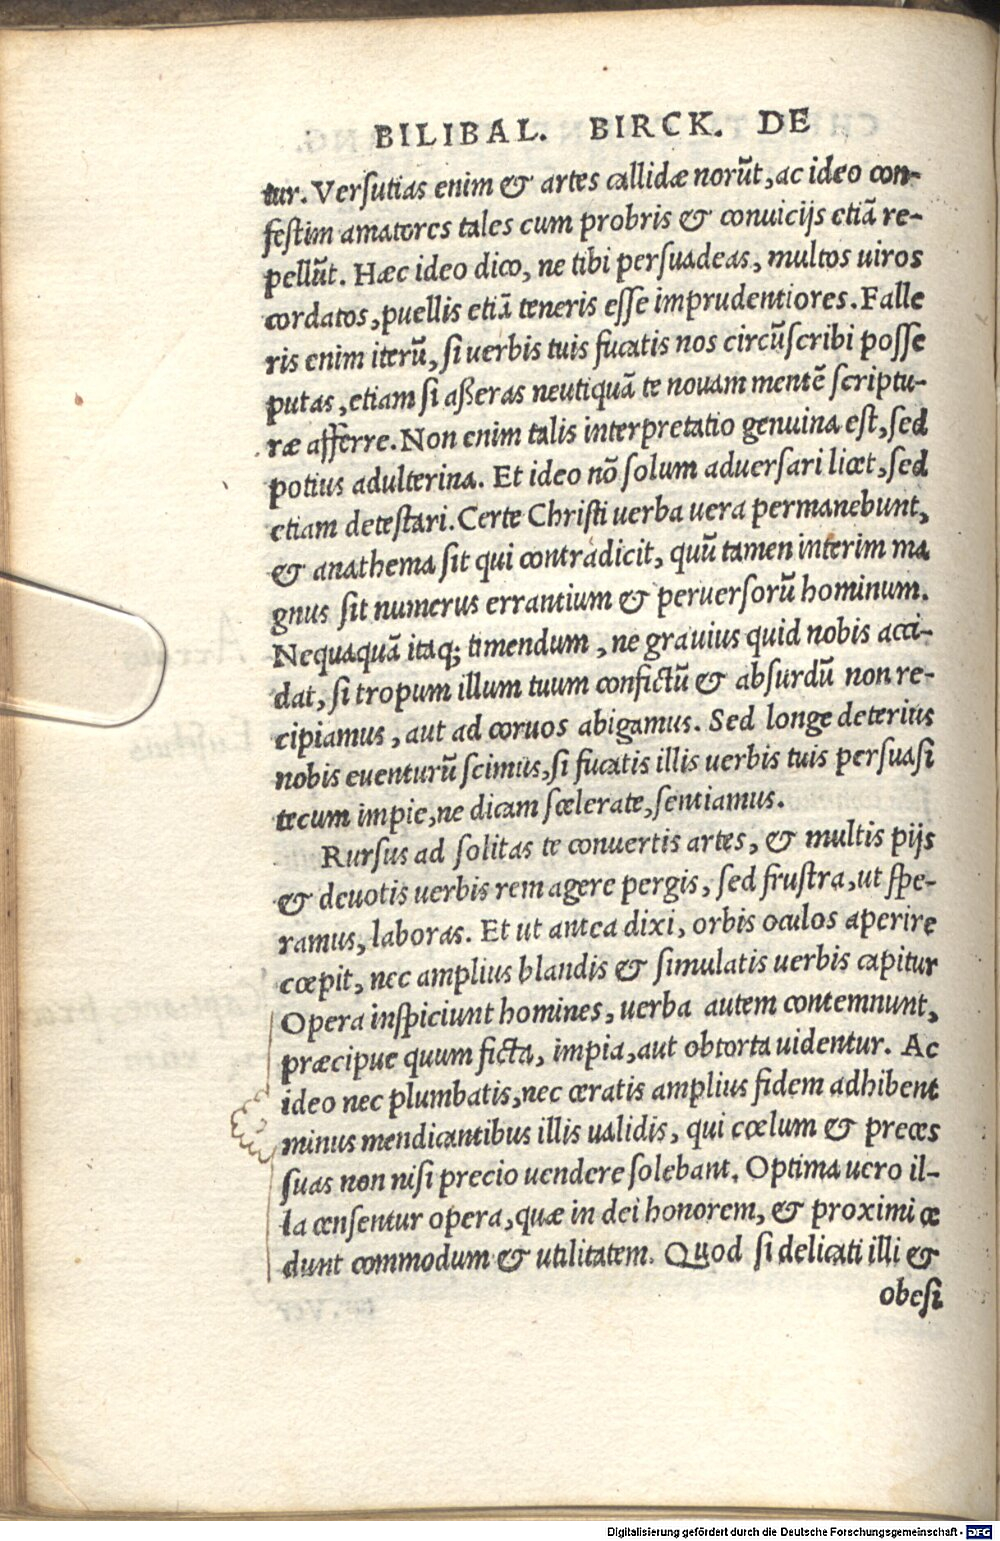 BILIBAL. BIRCK. DE
tur. Versutias enim & artes callidæ norūt, ac ideo con-
festim amatores tales cum probris & conuicijs etiā re-
pellūt. Hæc ideo dico, ne tibi persuadeas, multos uiros
cordatos, puellis etiā teneris esse imprudentiores. Falle
ris enim iterū, si uerbis tuis fucatis nos circūscribi posse
putas, etiam si aßeras neutiquā te nouam mentē scriptu-
ræ afferre. Non enim talis interpretatio genuina est, sed
potius adulterina. Et ideo nō solum aduersari licet, sed
etiam detestari. Certe Christi uerba uera permanebunt,
& anathema sit qui contradicit, quū tamen interim ma
gnus sit numerus errantium & peruersorū hominum.
Nequaquā itaq; timendum, ne grauius quid nobis acci-
dat, si tropum illum tuum confictū & absurdū non re-
cipiamus, aut ad coruos abigamus. Sed longe deterius
nobis euenturū scimus, si fucatis illis uerbis tuis persuasi
tecum impie, ne dicam scelerate, sentiamus.
Rursus ad solitas te conuertis artes, & multis pijs
& deuotis uerbis rem agere pergis, sed frustra, ut spe-
ramus, laboras. Et ut antea dixi, orbis oculos aperire
cœpit, nec amplius blandis & simulatis uerbis capitur
Opera inspiciunt homines, uerba autem contemnunt,
præcipue quum ficta, impia, aut obtorta uidentur. Ac
ideo nec plumbatis, nec ceratis amplius fidem adhibent
minus mendicantibus illis ualidis, qui cœlum & preces
suas non nisi precio uendere solebant. Optima uero il-
la censentur opera, quæ in dei honorem, & proximi ce
dunt commodum & utilitatem. Quod si delicati illi &
obesi
Digitalisierung gefördert durch die Deutsche Forschungsgemeinschaft - DFG